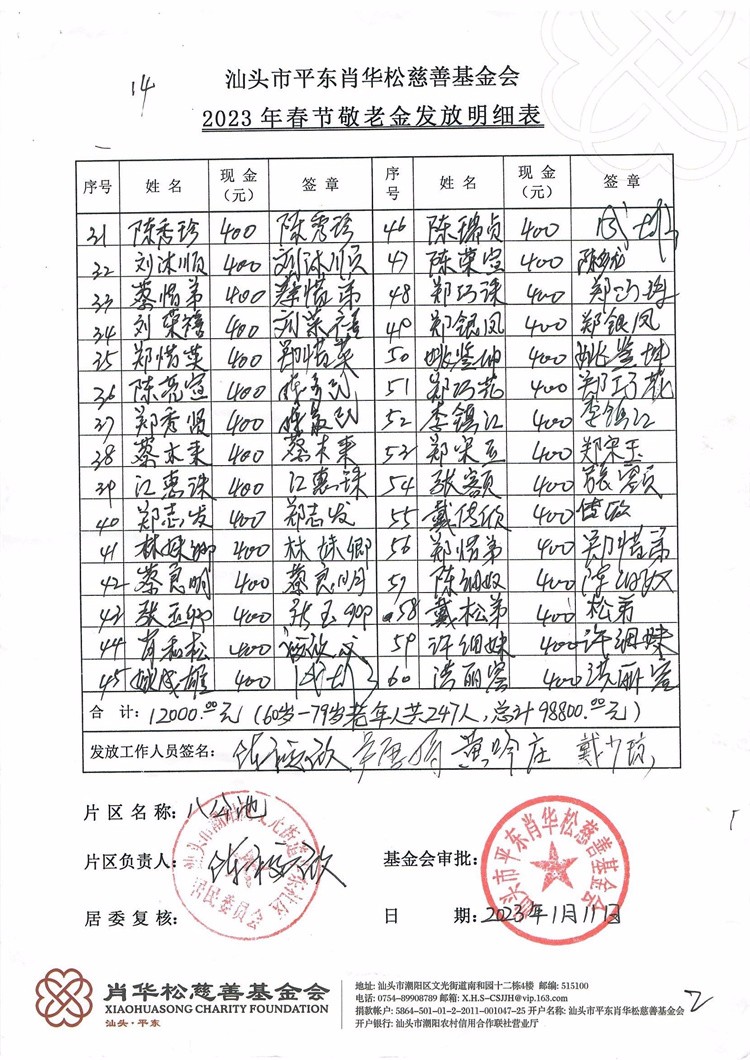 14
汕头市平东肖华松慈善基金会
2023年春节敬老金发放明细表
序号 姓名 现金(元) 签章 序号 姓名 现金(元) 签章
31 陈秀珍 400 陈秀珍 46 陈瑞贞 400
32 刘沐顺 400 刘沐顺 47 陈荣宣 400
33 蔡惜弟 400 蔡惜弟 48 郑巧珠 400 郑巧珠
34 刘荣禧 400 刘荣禧 49 郑银凤 400 郑银凤
35 郑惜英 400 郑惜英 50 400
36 陈克宣 400 51 郑巧花 400 郑巧花
37 郑秀贤 400 52 李镇江 400 李镇江
38 蔡木来 400 蔡木来 53 郑宋玉 400 郑宋玉
39 江惠珠 400 江惠珠 54 张客颜 400
40 郑志发 400 郑志发 55 400
41 林妹卿 400 林妹卿 56 郑惜弟 400 郑惜弟
42 蔡良明 400 蔡良明 57 陈细奴 400 陈细奴
43 张玉卿 400 张玉卿 58 戴松弟 400 松弟
44 肖和松 400 59 许细妹 400 许细妹
45 姚成雄 400 60 洪丽容 400 洪丽容
合 计:12000.00元(60岁—79岁老年人共247人,总计98800.00元)
发放工作人员签名: 黄吟庄
片区名称:八公池
片区负责人: 基金会审批:
居委复核: 日 期:2023年1月11日
居民委员会
汕头市平东肖华松慈善基金会
肖华松慈善基金会
XIAOHUASONG CHARITY FOUNDATION
汕头·平东
地址: 汕头市潮阳区文光街道南和园十二栋4楼 邮编: 515100
电话: 0754-89908789 邮箱: X.H.S-CSJJH@vip.163.com
捐款帐户: 5864-501-01-2-2011-001047-25 开户名称: 汕头市平东肖华松慈善基金会
开户银行: 汕头市潮阳农村信用合作联社营业厅
2